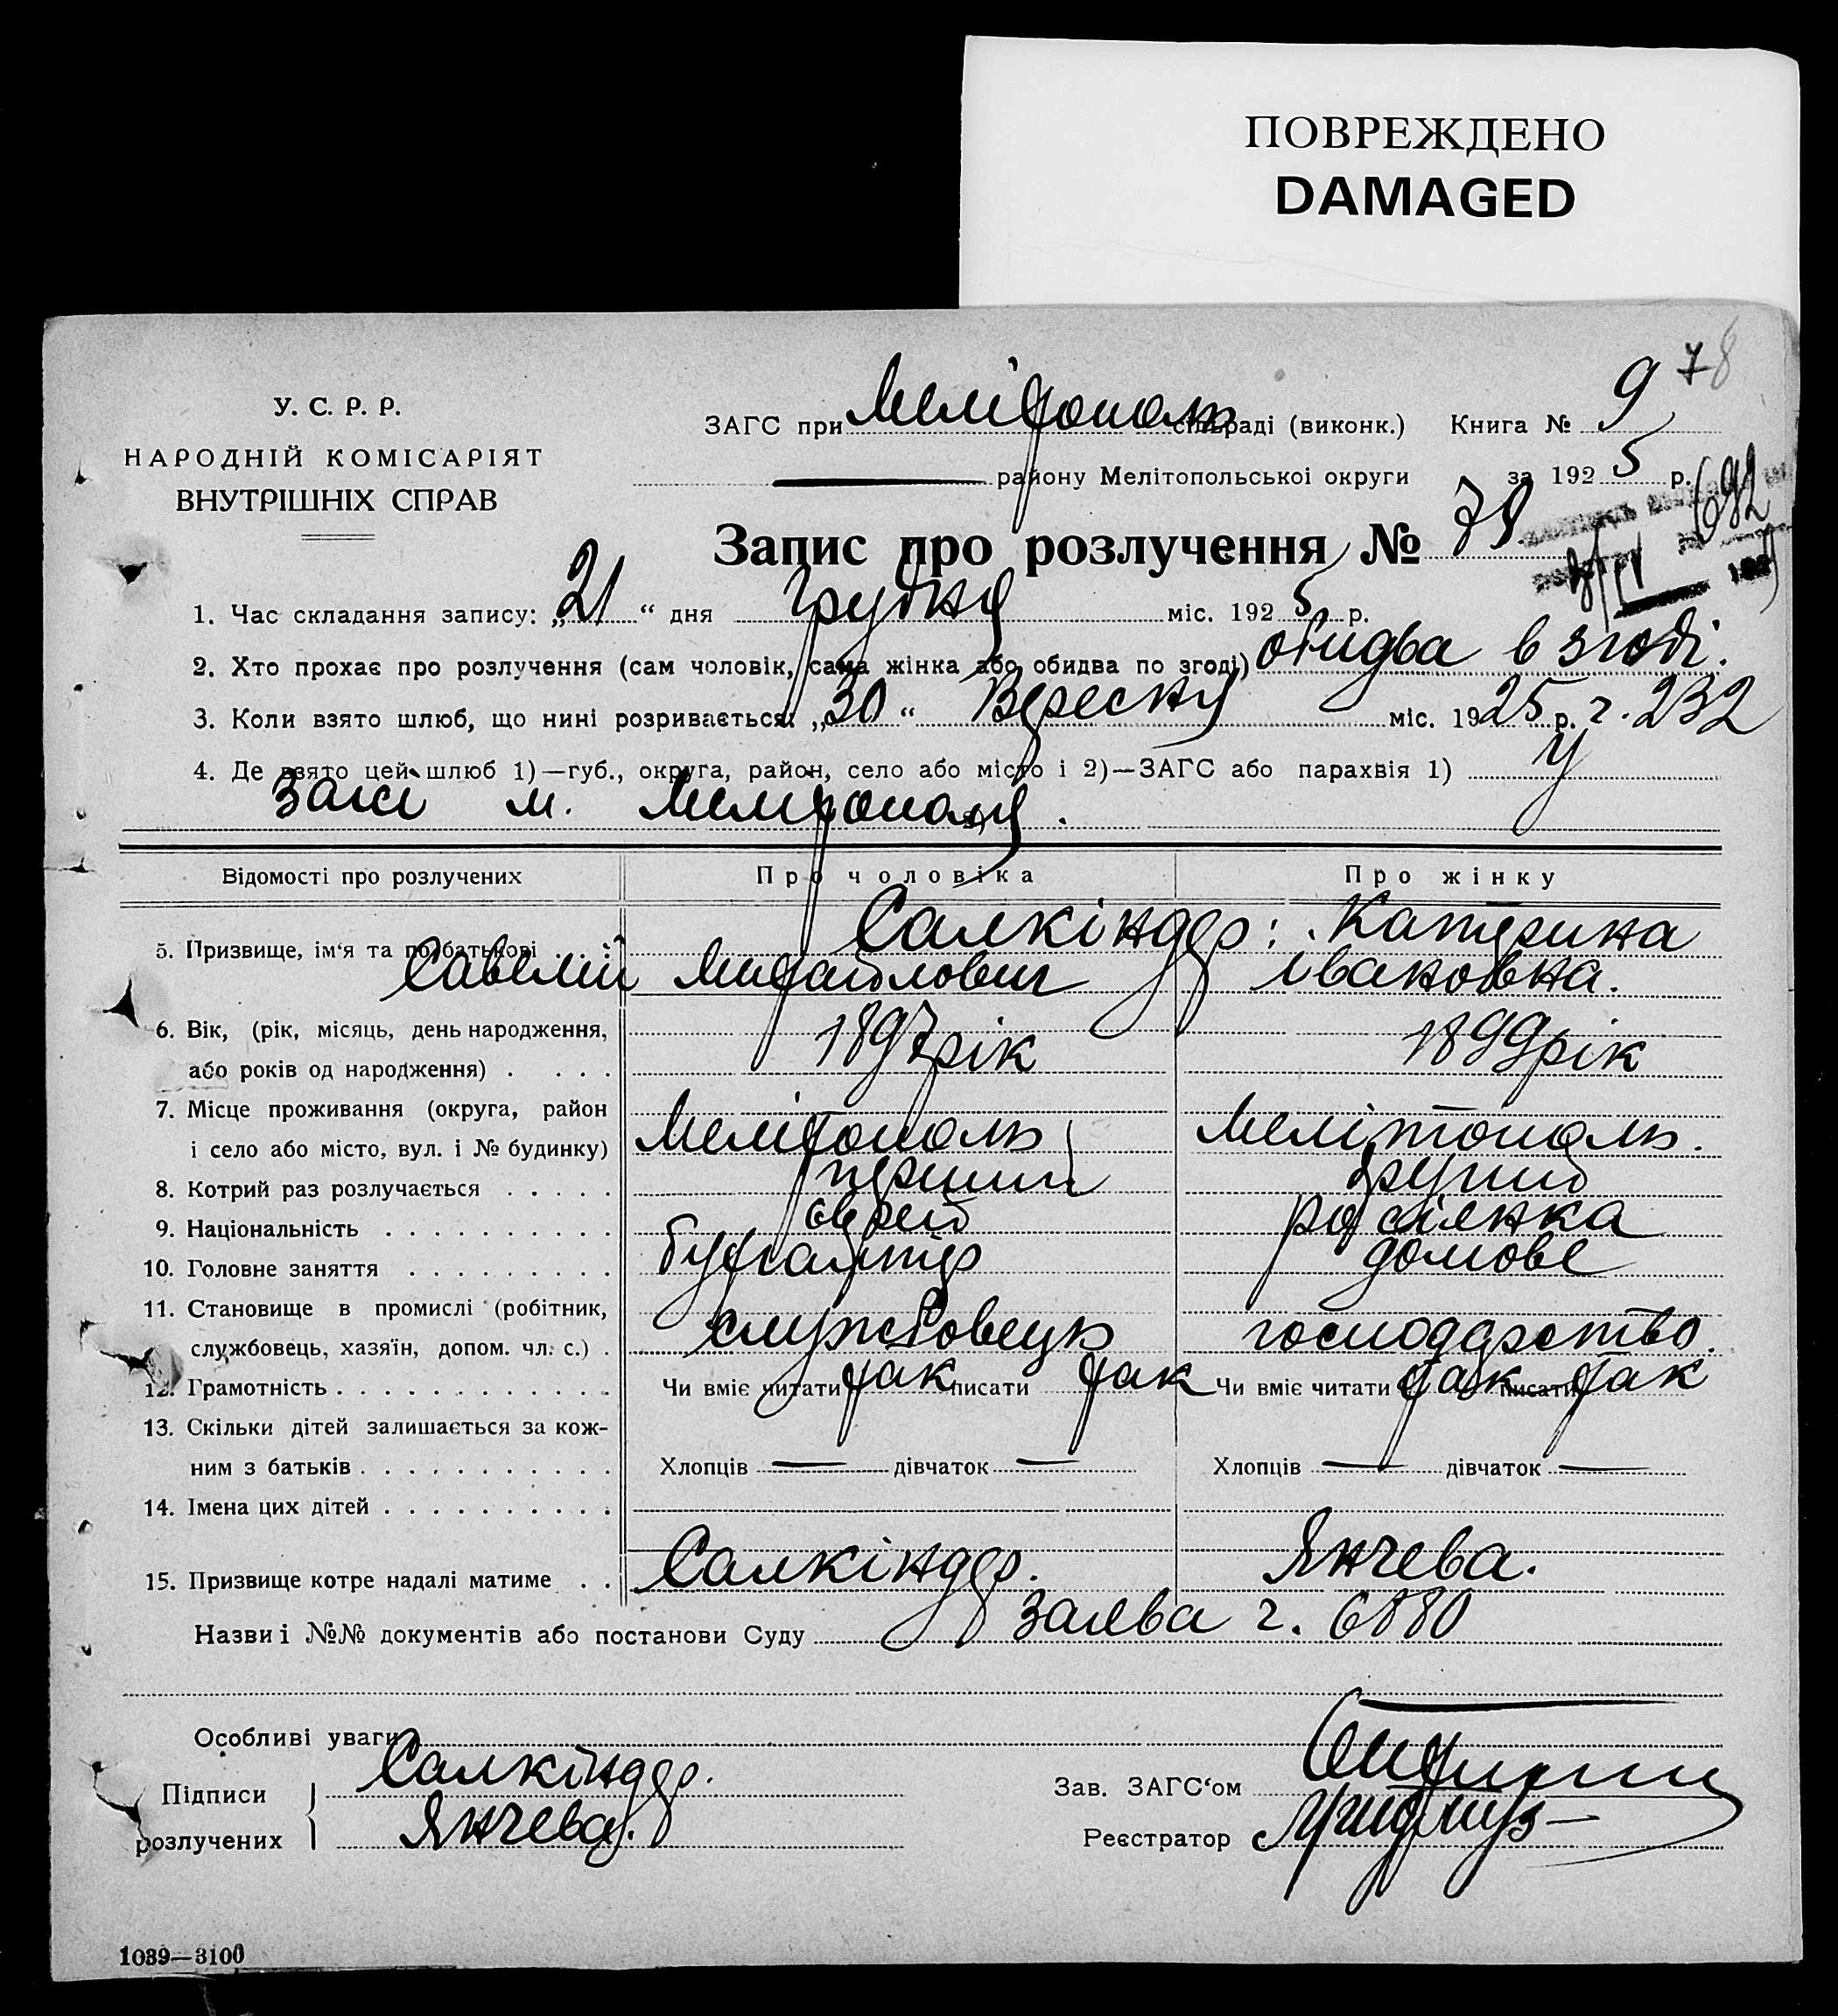 ПОВРЕЖДЕНО
DAMAGED
78
У. С. Р. Р.
НАРОДНІЙ КОМІСАРІЯТ
ВНУТРІШНІХ СПРАВ
ЗАГС при Мелітополь сільраді (виконк.) Книга № 9
району Мелітопольської округи за 1925 р.
692
Запис про розлучення № 79
1. Час складання запису: „21“ дня Грудня міс. 1925 р.
2. Хто прохає про розлучення (сам чоловік, сама жінка або обидва по згоді) обидва в згоді.
3. Коли взято шлюб, що нині розривається: „30“ Вересня міс. 1925 р. ч. 232
4. Де взято цей шлюб 1)—губ., округа, район, село або місто і 2)—ЗАГС або парахвія 1) у
Загсі м. Мелітополя.
Відомості про розлучених Про чоловіка Про жінку
5. Призвище, ім'я та по батькові Салкіндер: Катерина
Савелій Михайлович Івановна.
6. Вік, (рік, місяць, день народження, або років од народження) 1897 рік 1899 рік
7. Місце проживання (округа, район і село або місто, вул. і № будинку) Мелітополь Мелітополь.
8. Котрий раз розлучається перший другий
9. Національність єврей росіянка
10. Головне заняття бухгалтер домове
11. Становище в промислі (робітник, службовець, хазяїн, допом. чл. с.) службовець господарство.
12. Грамотність Чи вміє читати так писати так Чи вміє читати так писати так
13. Скільки дітей залишається за кож-
ним з батьків Хлопців — дівчаток — Хлопців — дівчаток —
14. Імена цих дітей
15. Призвище котре надалі матиме Салкіндер. Янчева.
Назви і №№ документів або постанови Суду заява ч. 6880
Особливі уваги
Підписи Салкіндер. Зав. ЗАГС'ом
розлучених Янчева. Реєстратор
1039—3100